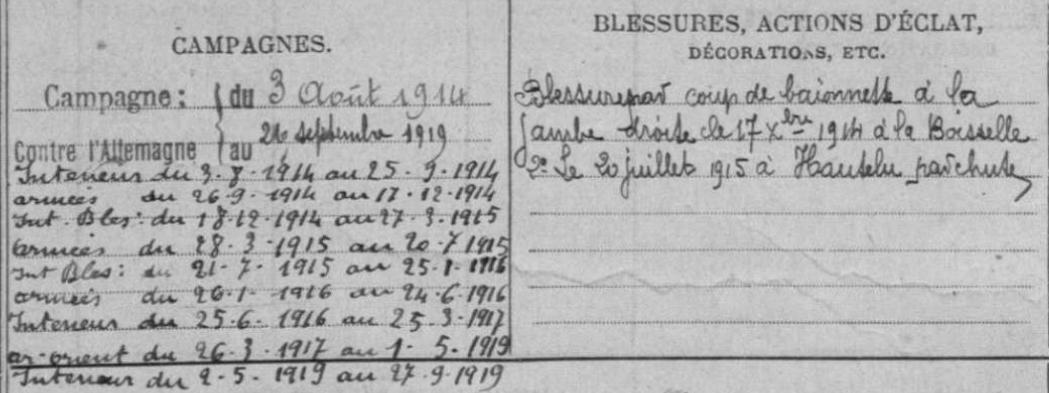 CAMPAGNES.
Campagne : du 3 Août 1914
Contre l'Allemagne au 26 septembre 1919
Interieur du 3.8.1914 au 25.9.1914
armées du 26.9.1914 au 17.12.1914
Int. Bles: du 18.12.1914 au 27.3.1915
armées du 28.3.1915 au 20.7 1915
Int Bles: du 21.7.1915 au 25.1.1916
armées du 26.1.1916 au 24.6.1916
Interieur du 25.6.1916 au 25.3.1917
ar-orient du 26.3.1917 au 1.5.1919
Interieur du 2.5.1919 au 27.9.1919
BLESSURES, ACTIONS D'ÉCLAT,
DÉCORATIONS, ETC.
Blessure par coup de baïonnette à la
jambe droite le 17 Xbre 1914 à la Boisselle
2° Le 20 juillet 1915 à par chute